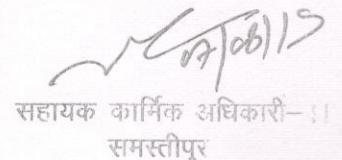 सहायक कार्मिक अधिकारी-II
समस्तीपुर